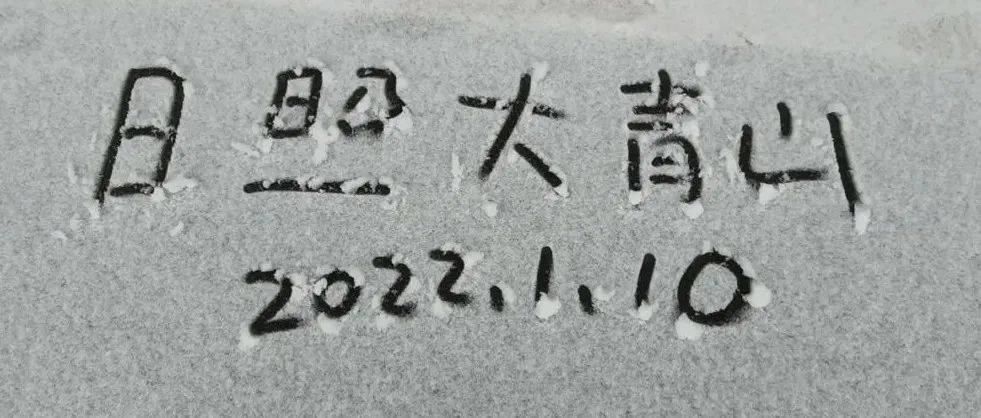 日照大青山
2022.1.10